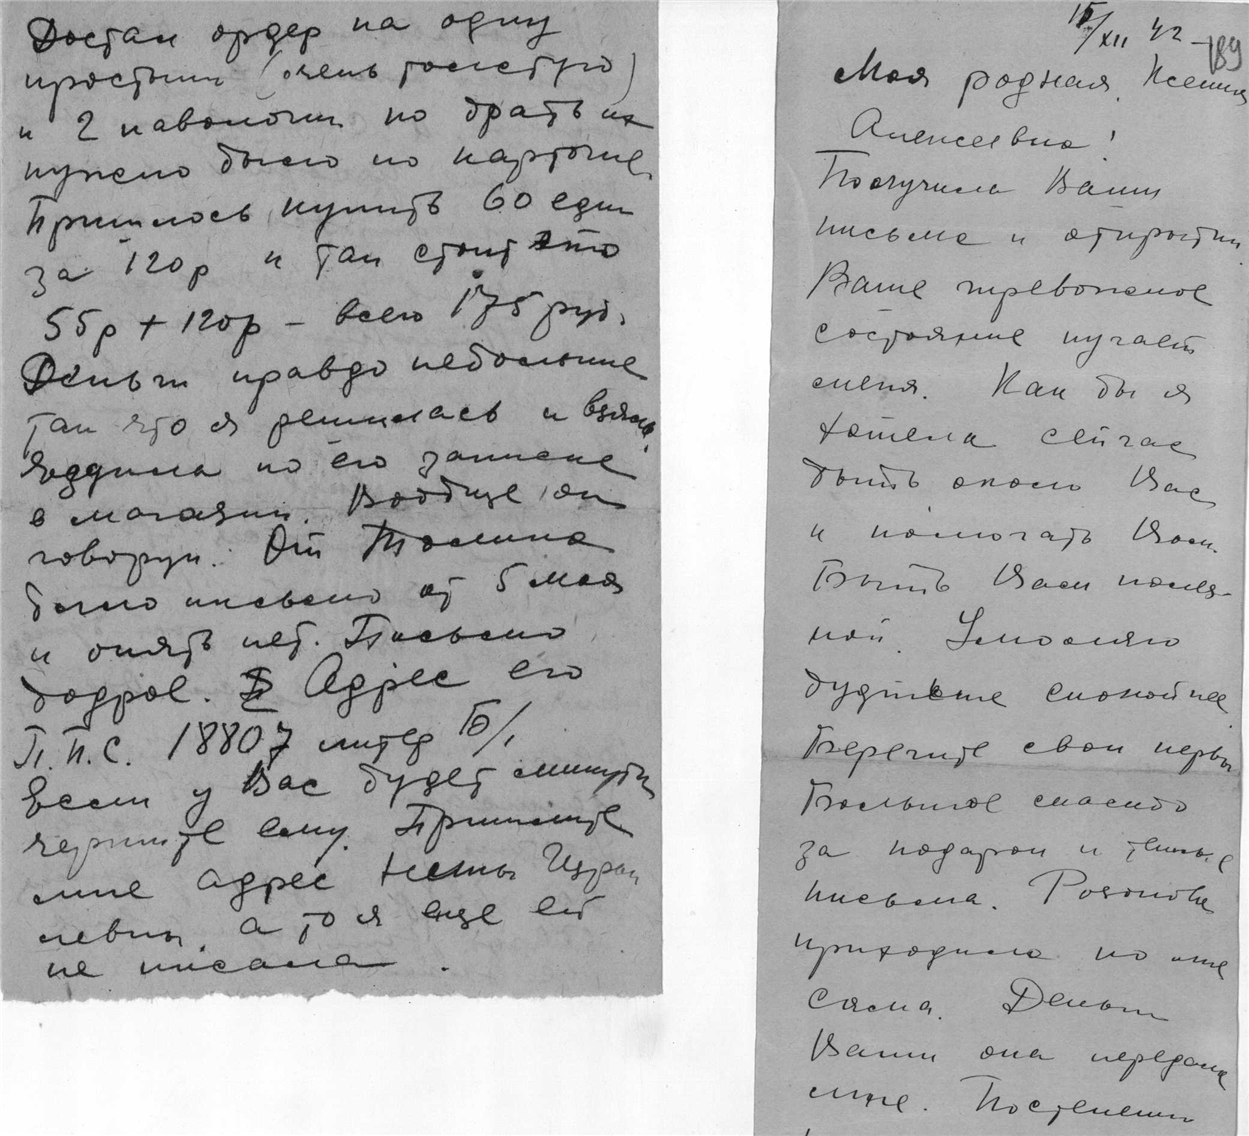 Достал ордер на одну
простыню (очень толстую)
и 2 наволочки но брать их
нужно было по карточке.
Пришлось купить 60 един
за 120р и так стоит это
55р + 120р – всего 175 руб.
Деньги правда небольшие
так что я решилась и взяла.
Ездила по его записке
в магазин. Вообще он
говорун. От Толика
было письмо от 5 мая
и опять нет. Письмо
бодрое. Адрес его
П.П.С. 18807 литер Б/1
Если у Вас будет минутка
черните ему. Пришлите
мне адрес
левны, а то я еще ей
не писала.
15/XII 42
189
Моя родная Ксения
Алексеевна!
Получила Ваши
письма и открытки.
Ваше тревожное
состояние пугает
меня. Как бы я
хотела сейчас
быть около Вас
и помогать Вам.
Быть Вам
Умоляю
будьте спокойнее.
Берегите свои нервы
Большое спасибо
за подарок и теплые
письма.
приходила ко мне
сама. Деньги
Ваши она передала
мне. Постепенно